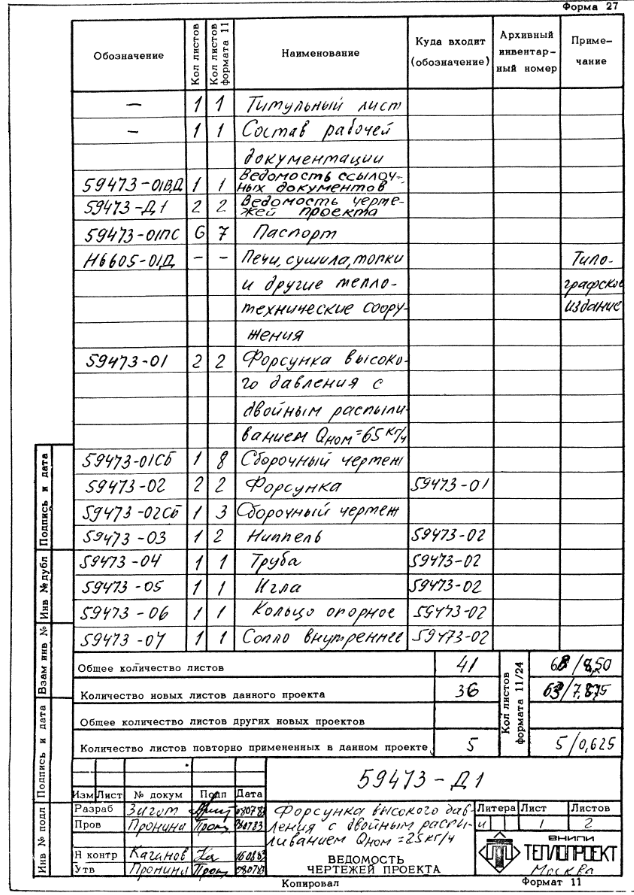 Форма 27
Обозначение | Кол листов | Кол листов формата 11 | Наименование | Куда входит (обозначение) | Архивный инвентарный номер | Примечание
– 1 1 Титульный лист
– 1 1 Состав рабочей
документации
59473-01ВД 1 1 Ведомость ссылочных документов
59473-Д1 2 2 Ведомость чертежей проекта
59473-01ПС 6 7 Паспорт
Н6605-01Д – – Печи, сушила, топки Типо-
и другие тепло- графское
технические соору- издание
жения
59473-01 2 2 Форсунка высоко-
го давления с
двойным распыли-
ванием Qном=65 кг/ч
59473-01СБ 1 8 Сборочный чертеж
59473-02 2 2 Форсунка 59473-01
59473-02СБ 1 3 Сборочный чертеж
59473-03 1 2 Ниппель 59473-02
59473-04 1 1 Труба 59473-02
59473-05 1 1 Игла 59473-02
59473-06 1 1 Кольцо опорное 59473-02
59473-07 1 1 Сопло внутреннее 59473-02
Общее количество листов 41 Кол листов формата 11/24 68/8,50
Количество новых листов данного проекта 36 63/7,875
Общее количество листов других новых проектов
Количество листов повторно примененных в данном проекте 5 5/0,625
Инв № подл Подпись и дата Взам инв № Инв № дубл Подпись и дата
59473-Д1
Изм Лист № докум Подп Дата
Разраб
Пров Пронина
Н контр Каганов
Утв Пронина
Форсунка высокого дав-
ления с двойным распы-
ливанием Qном=25 кг/ч
ВЕДОМОСТЬ
ЧЕРТЕЖЕЙ ПРОЕКТА
Литера Лист Листов
И 1 2
ВНИПИ
ТЕПЛОПРОЕКТ
Москва
Копировал Формат 11